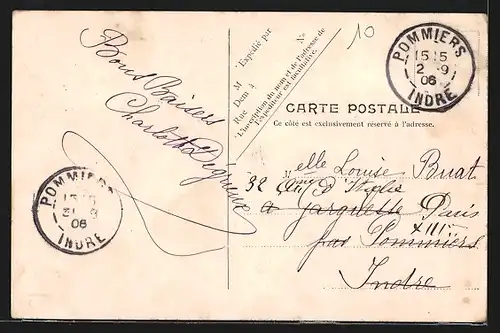 Bons Baisers
Charlotte
Expédié par
M
Dem à
Rue
N°
"L'inscription du nom et de l'adresse de
l'Expéditeur est facultative.
10
POMMIERS
15 15
2 - 9
06
INDRE
CARTE POSTALE
Ce côté est exclusivement réservé à l'adresse.
Melle Louise Buat
32 d'Italie
a Jarguette Paris
XIII
par Pommiers
Indre
POMMIERS
31 - 8
06
INDRE